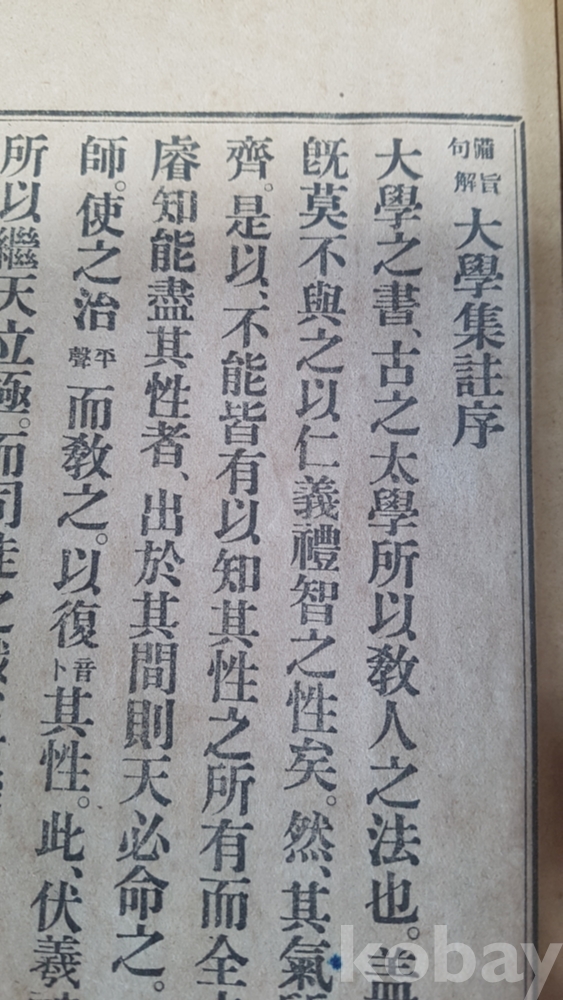 備旨句解 大學集註序
大學之書、古之太學所以敎人之法也。蓋
旣莫不與之以仁義禮智之性矣。然、其氣
齊。是以、不能皆有以知其性之所有而全
睿知能盡其性者、出於其間則天必命之。
師。使之治平聲而敎之。以復音卜其性。此、伏羲
所以繼天立極。而司徒之
kobay